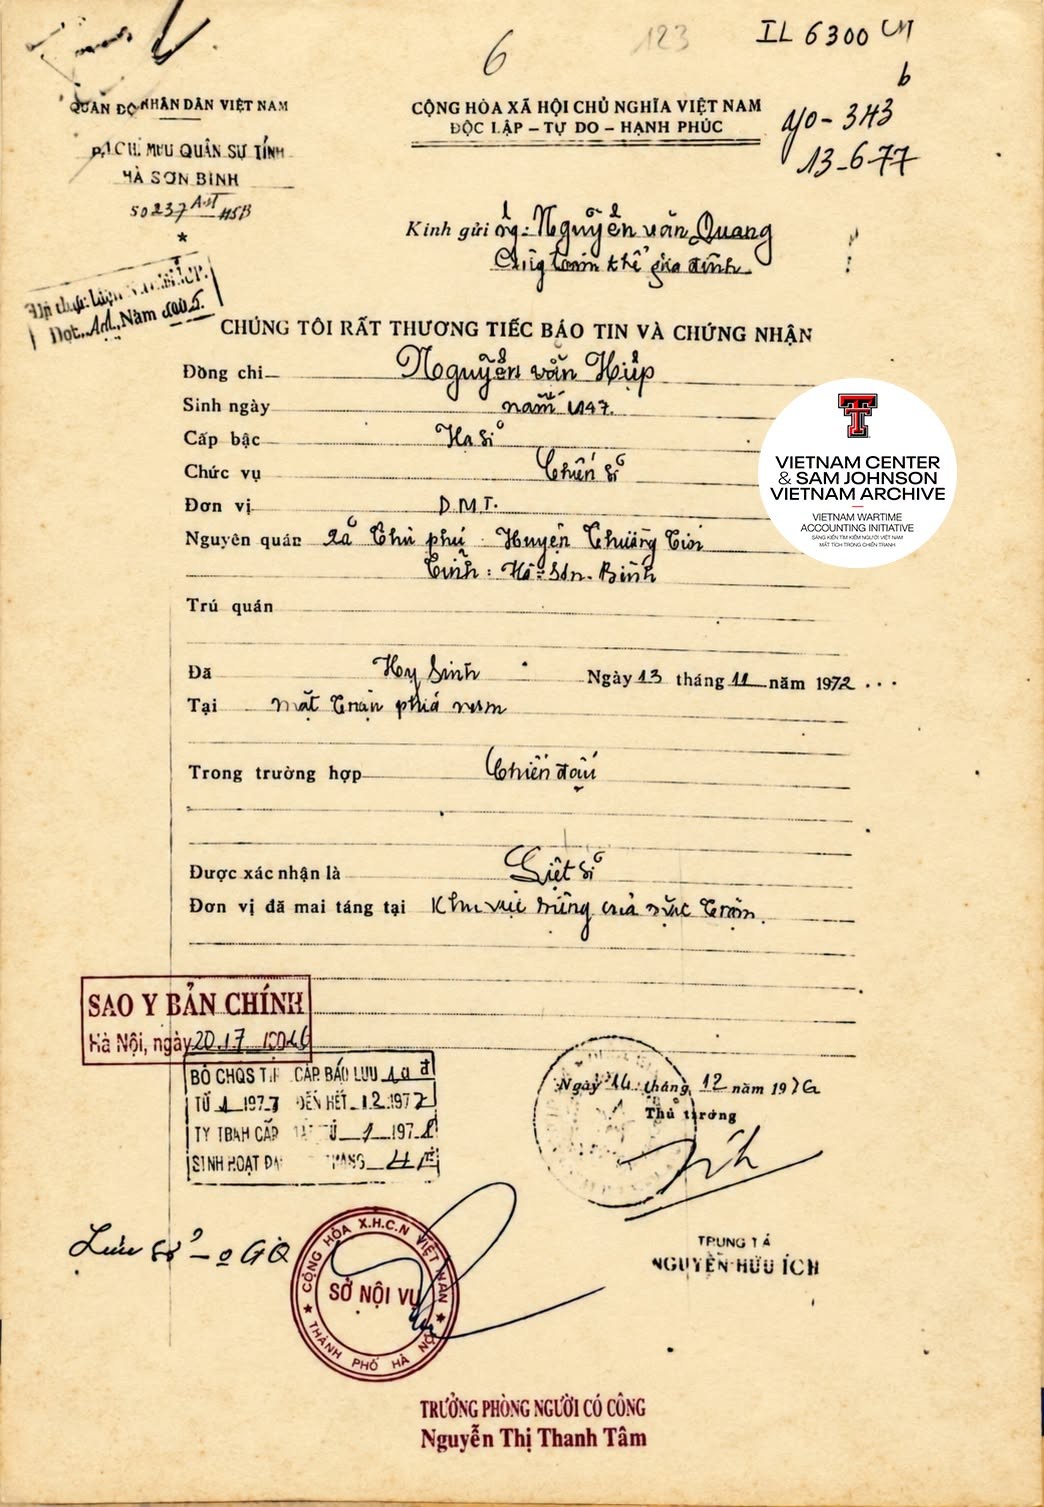 6
123
IL 6300
b
40-343
13-6-77
QUÂN ĐỘI NHÂN DÂN VIỆT NAM
BỘ CH. MƯU QUÂN SỰ TỈNH
HÀ SƠN BÌNH
50237 HSB
*
CỘNG HÒA XÃ HỘI CHỦ NGHĨA VIỆT NAM
ĐỘC LẬP – TỰ DO – HẠNH PHÚC
Kính gửi ông: Nguyễn văn Quang
Cùng toàn thể gia đình
Đợt 11 Năm 2005
CHÚNG TÔI RẤT THƯƠNG TIẾC BÁO TIN VÀ CHỨNG NHẬN
Đồng chí Nguyễn văn Hiệp
Sinh ngày năm 1947.
Cấp bậc Hạ sĩ
Chức vụ Chiến sĩ
Đơn vị D.M.T.
Nguyên quán xã Thụ phú Huyện Thường Tín
Tỉnh: Hà-Sơn-Bình
Trú quán
Đã Hy Sinh Ngày 13 tháng 11 năm 1972
Tại mặt trận phía nam
Trong trường hợp Chiến đấu
Được xác nhận là Liệt sĩ
Đơn vị đã mai táng tại Khu vực riêng của mặt trận.
VIETNAM CENTER
& SAM JOHNSON
VIETNAM ARCHIVE
VIETNAM WARTIME
ACCOUNTING INITIATIVE
SÁNG KIẾN TÌM KIẾM NGƯỜI VIỆT NAM
MẤT TÍCH TRONG CHIẾN TRANH
SAO Y BẢN CHÍNH
Hà Nội, ngày 20.17
BỘ CHQS TỈNH CẤP BÁO LƯU
TỪ 1 1977 ĐẾN HẾT 12.1977
TY TBXH CẤP TỪ 1 1978
SINH HOẠT THÁNG
Ngày 14 tháng 12 năm 1976
Thủ trưởng
TRUNG TÁ
NGUYỄN HỮU ÍCH
Lưu sổ GQ
CỘNG HÒA X.H.C.N VIỆT NAM
SỞ NỘI VỤ
THÀNH PHỐ HÀ NỘI
TRƯỞNG PHÒNG NGƯỜI CÓ CÔNG
Nguyễn Thị Thanh Tâm